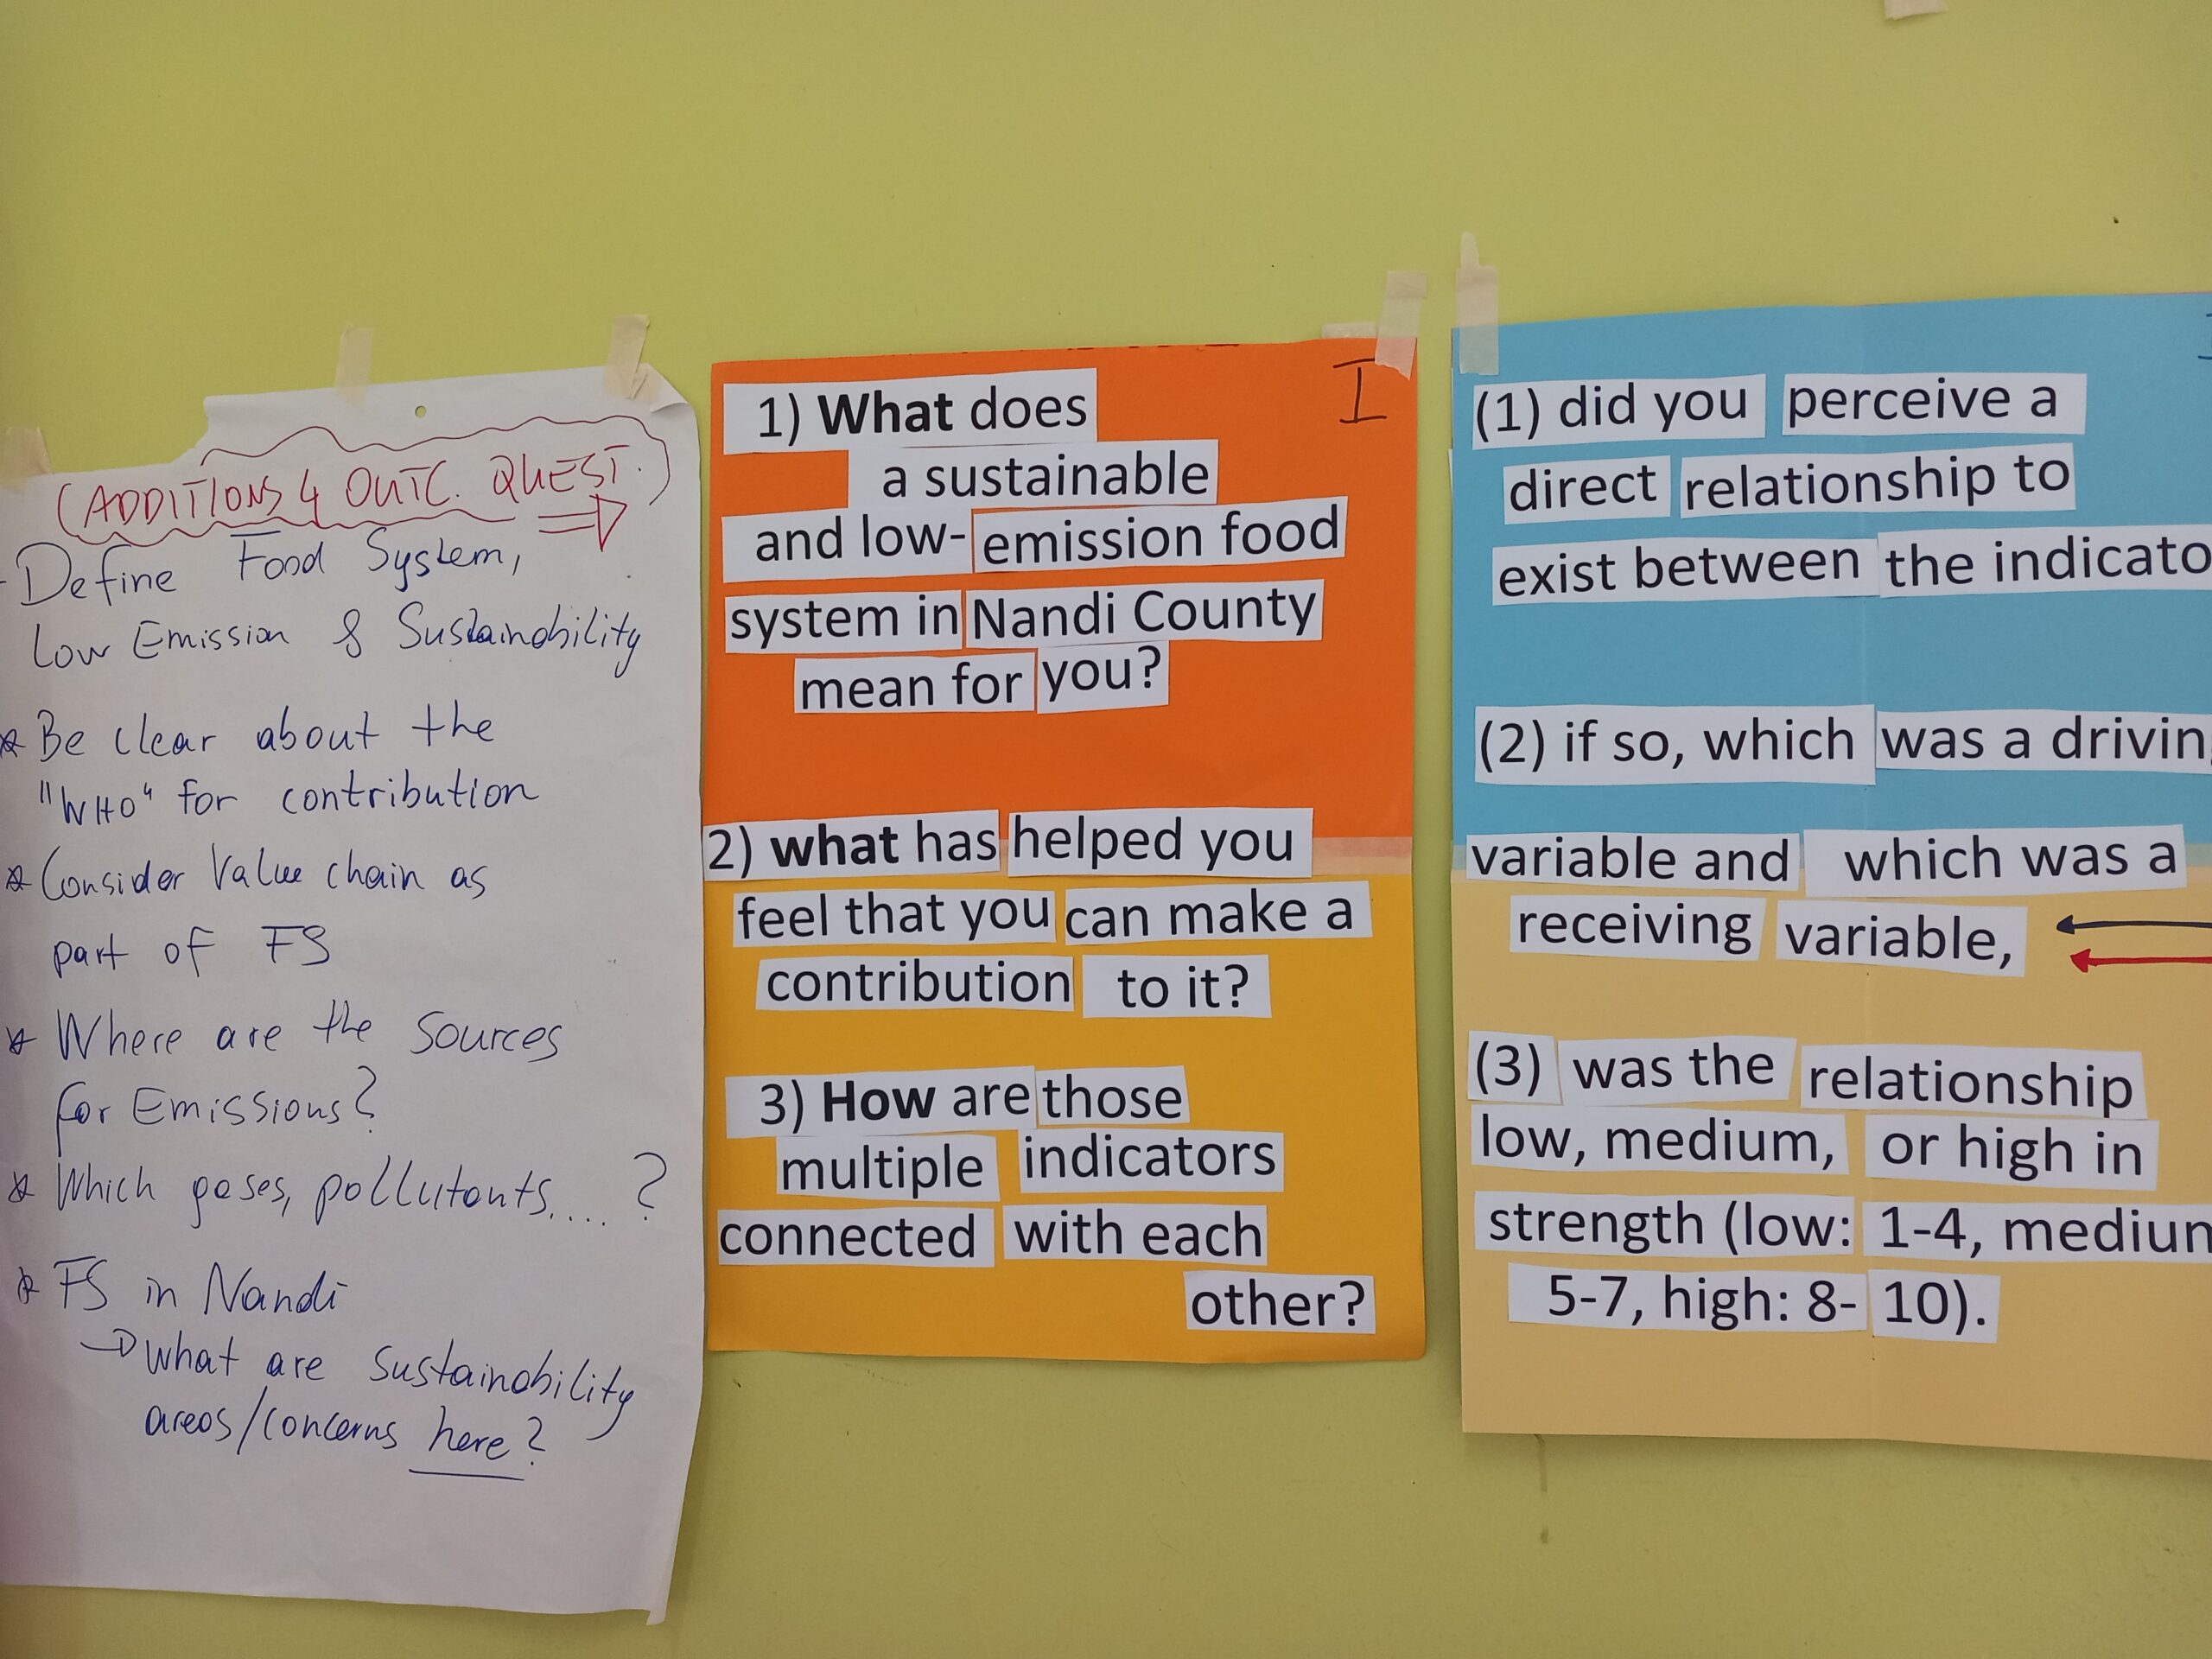 (ADDITIONS 4 OUTC. QUEST.)
- Define Food System,
Low Emission & Sustainability
* Be clear about the
"WHO" for contribution
* Consider Value chain as
part of FS
* Where are the sources
for Emissions?
* Which gases, pollutants.... ?
* FS in Nandi
→ what are sustainability
areas/concerns here?
I
1) What does
a sustainable
and low- emission food
system in Nandi County
mean for you?
2) what has helped you
feel that you can make a
contribution to it?
3) How are those
multiple indicators
connected with each
other?
(1) did you perceive a
direct relationship to
exist between the indicato
(2) if so, which was a drivin
variable and which was a
receiving variable,
(3) was the relationship
low, medium, or high in
strength (low: 1-4, medium
5-7, high: 8- 10).